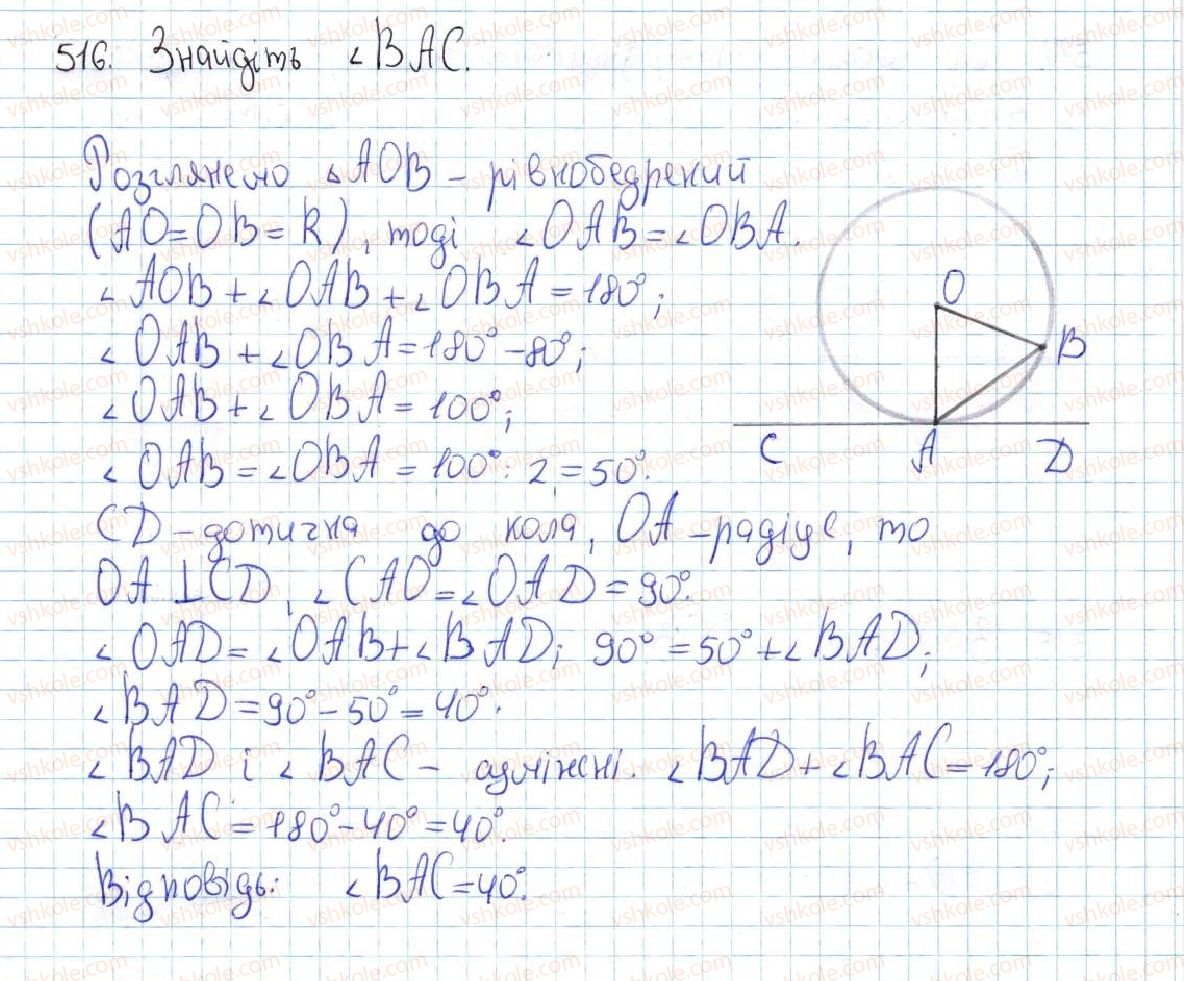 516. Знайдіть ∠BAC.
Розглянемо △AOB – рівнобедрений
(AO=OB=R), тоді ∠OAB=∠OBA.
∠AOB+∠OAB+∠OBA=180°;
∠OAB+∠OBA=180°-80°;
∠OAB+∠OBA=100°;
∠OAB=∠OBA=100°:2=50°.
CD-дотична до кола, OA-радіус, то
OA⊥CD, ∠CAO=∠OAD=90°.
∠OAD=∠OAB+∠BAD; 90°=50°+∠BAD;
∠BAD=90°-50°=40°.
∠BAD і ∠BAC – суміжні. ∠BAD+∠BAC=180°;
∠BAC=180°-40°=40°.
Відповідь: ∠BAC=40°.
O
B
C A D